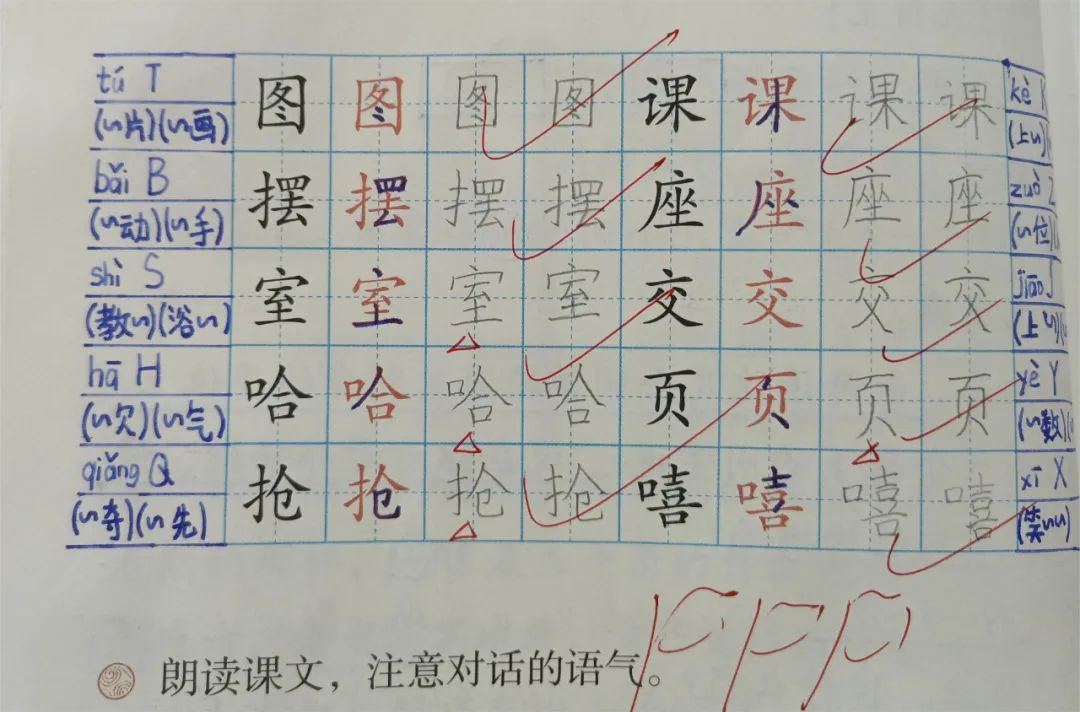 tú T 图 图 图 图 课 课 课 课 kè
(～片)(～画) (上～)
bǎi B 摆 摆 摆 摆 座 座 座 座 zuò
(～动)(～手) (～位)
shì S 室 室 室 室 交 交 交 交 jiāo J
(教～)(浴～) (上～)
hā H 哈 哈 哈 哈 页 页 页 页 yè Y
(～欠)(～气) (～数)
qiǎng Q 抢 抢 抢 抢 嘻 嘻 嘻 嘻 xī X
(～夺)(～先) (笑～～)
朗读课文，注意对话的语气。